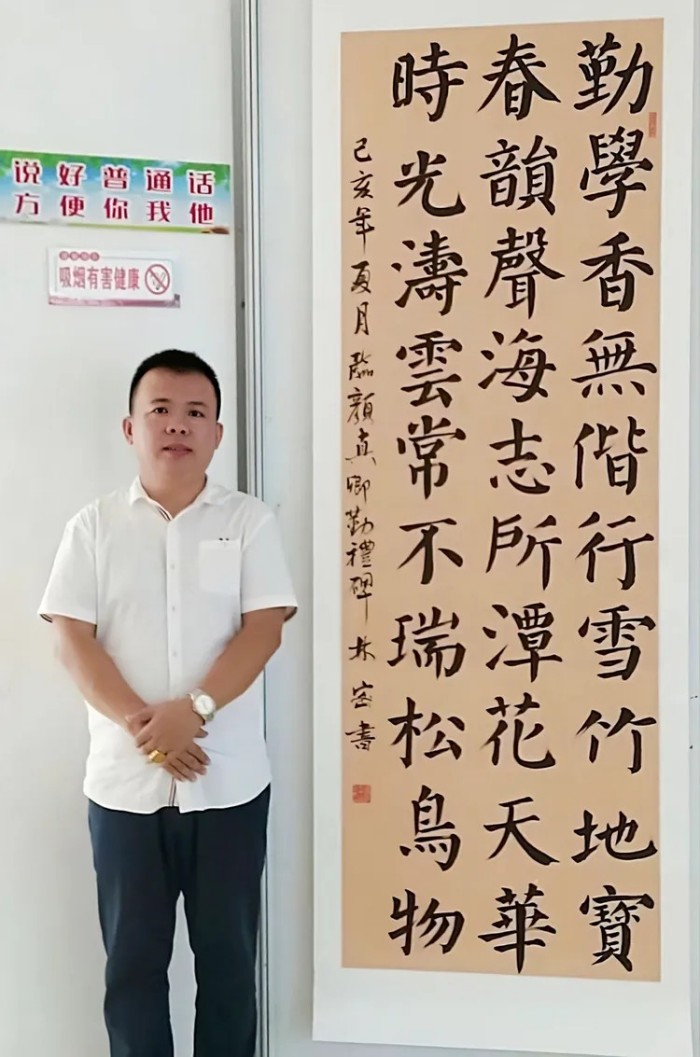 说好普通话
方便你我他
吸烟有害健康
勤學香無偕行雪竹地寶
春韻聲海志所潭花天華
時光濤雲常不瑞松鳥物
己亥年夏月臨顏真卿勤禮碑林宏書